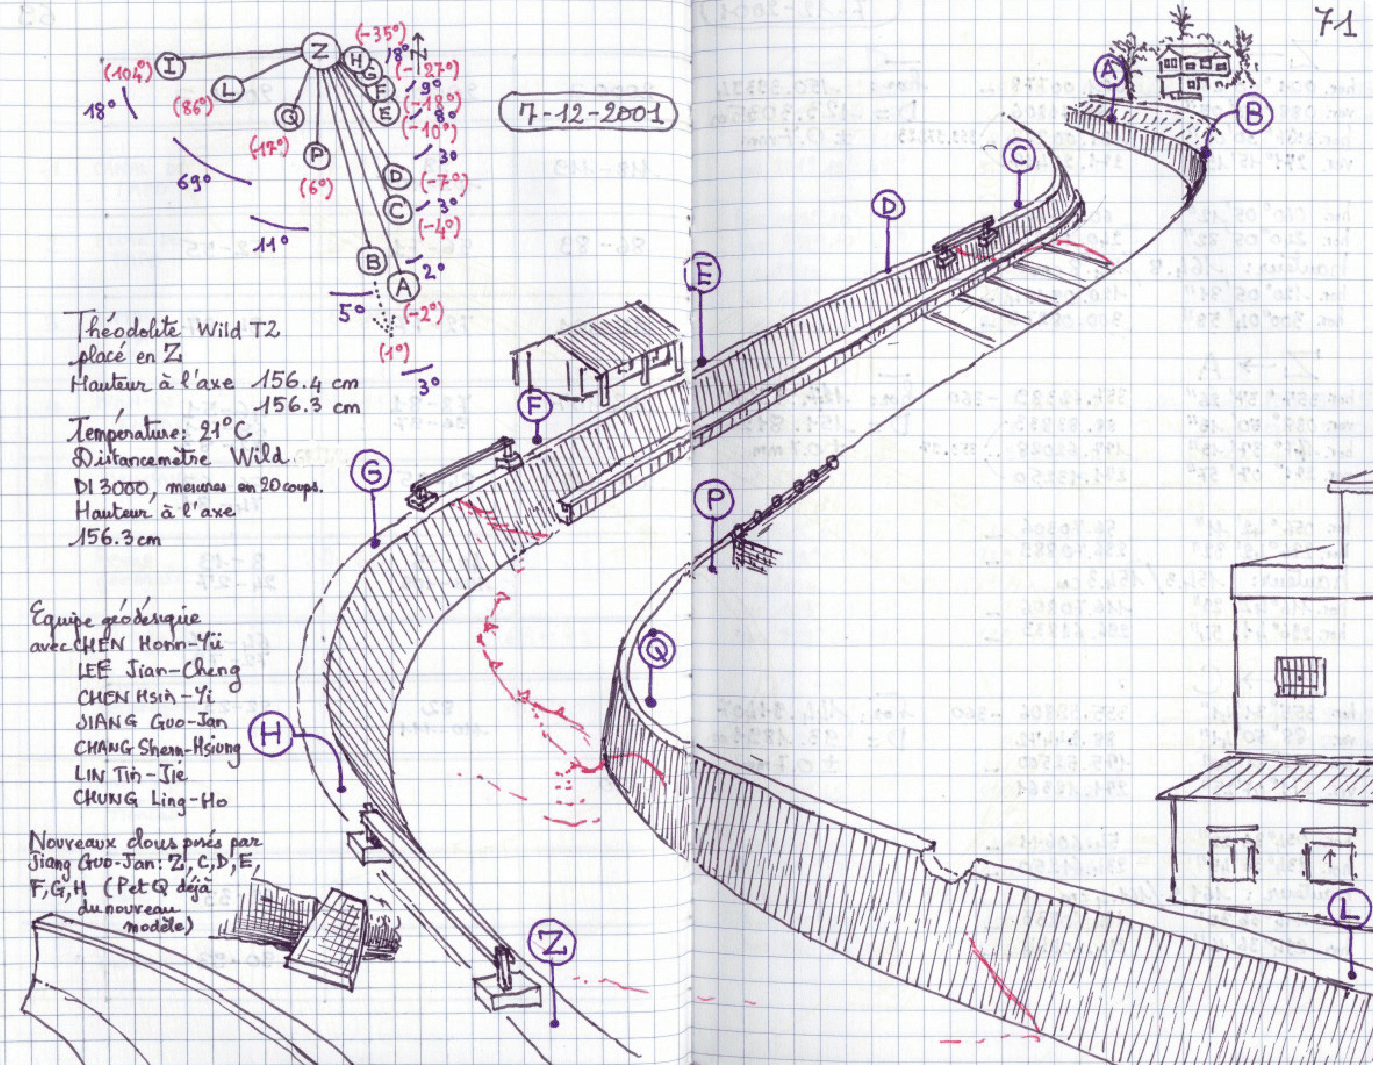 71
7-12-2001
Z
I
L
Q
P
H
G
F
E
D
C
B
A
(-35°)
18°
N
(-27°)
9°
(-18°)
8°
(-10°)
3°
(-7°)
3°
(-4°)
2°
(-2°)
5°
(1°)
3°
(104°)
18°
(86°)
(17°)
69°
(6°)
11°
Théodolite Wild T2
placé en Z
Hauteur à l'axe 156.4 cm
156.3 cm
Température: 21°C
Distancemètre Wild
DI 3000, mesures en 20 coups.
Hauteur à l'axe
156.3 cm
Equipe géodésique
avec CHEN Horn-Yü
LEE Jian-Cheng
CHEN Hsin-Yi
JIANG Guo-Jan
CHANG Shern-Hsiung
LIN Tin-Jie
CHUNG Ling-Ho
Nouveaux clous posés par
Jiang Guo-Jan: Z, C, D, E,
F, G, H (P et Q déjà
du nouveau
modèle)
A
B
C
D
E
F
G
P
Q
H
L
Z